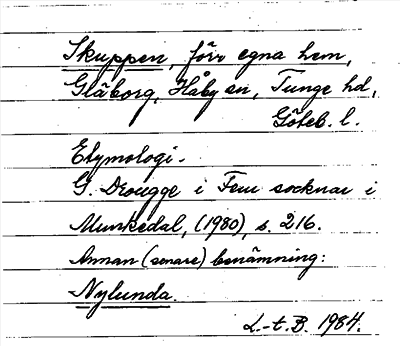 Skuppen, förr egna hem,
Gläborg, Håby sn, Tunge hd,
Göteb. l.
Etymologi.
G. Drougge i Fem socknar i
Munkedal, (1980), s. 216.
Annan (senare) benämning:
Nylunda.
L.-t. B. 1984.